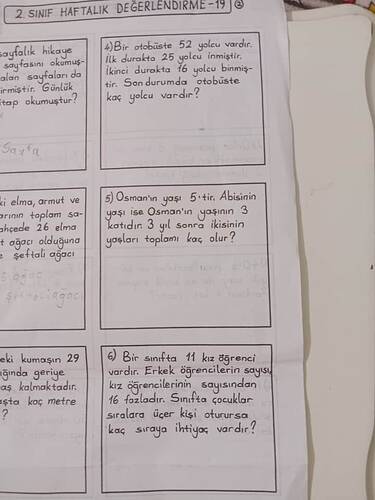 2. SINIF HAFTALIK DEĞERLENDİRME-19 2
sayfalık hikaye
sayfasını okumuş-
alan sayfaları da
irmiştir. Günlük
itap okumuştur?
Sayfa
4) Bir otobüste 52 yolcu vardır.
İlk durakta 25 yolcu inmiştir.
İkinci durakta 16 yolcu binmiş-
tir. Son durumda otobüste
kaç yolcu vardır?
ki elma, armut ve
arının toplam sa-
ahçede 26 elma
t ağacı olduğuna
e şeftali ağacı
ağaç
5) Osman'ın yaşı 5'tir. Abisinin
yaşı ise Osman'ın yaşının 3
katıdır. 3 yıl sonra ikisinin
yaşları toplamı kaç olur?
eki kumaşın 29
ığında geriye
aş kalmaktadır.
aşta kaç metre
?
6) Bir sınıfta 11 kız öğrenci
vardır. Erkek öğrencilerin sayısı
kız öğrencilerinin sayısından
16 fazladır. Sınıfta çocuklar
sıralara üçer kişi oturursa
kaç sıraya ihtiyaç vardır?